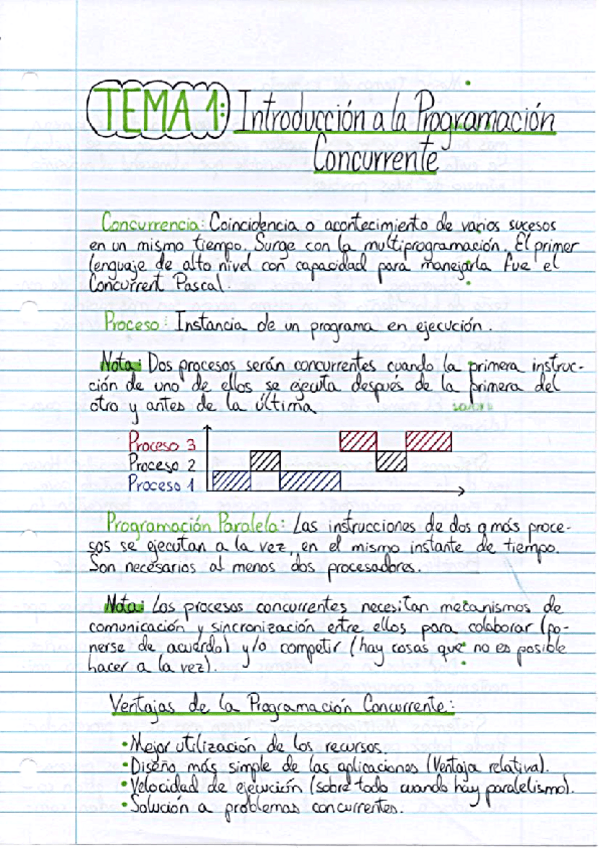 TEMA 1: Introducción a la Programación
Concurrente
Concurrencia: Coincidencia o acontecimiento de varios sucesos
en un mismo tiempo. Surge con la multiprogramación. El primer
lenguaje de alto nivel con capacidad para manejarla fue el
Concurrent Pascal.
Proceso: Instancia de un programa en ejecución.
Nota: Dos procesos serán concurrentes cuando la primera instruc-
ción de uno de ellos se ejecuta después de la primera del
otro y antes de la última
Proceso 3
Proceso 2
Proceso 1
Programación Paralela: Las instrucciones de dos o más proce-
sos se ejecutan a la vez, en el mismo instante de tiempo.
Son necesarios al menos dos procesadores.
Nota: Los procesos concurrentes necesitan mecanismos de
comunicación y sincronización entre ellos para colaborar (po-
nerse de acuerdo) y/o competir (hay cosas que no es posible
hacer a la vez).
Ventajas de la Programación Concurrente:
• Mejor utilización de los recursos.
• Diseño más simple de las aplicaciones (Ventaja relativa).
• Velocidad de ejecución (sobre todo cuando hay paralelismo).
• Solución a problemas concurrentes.